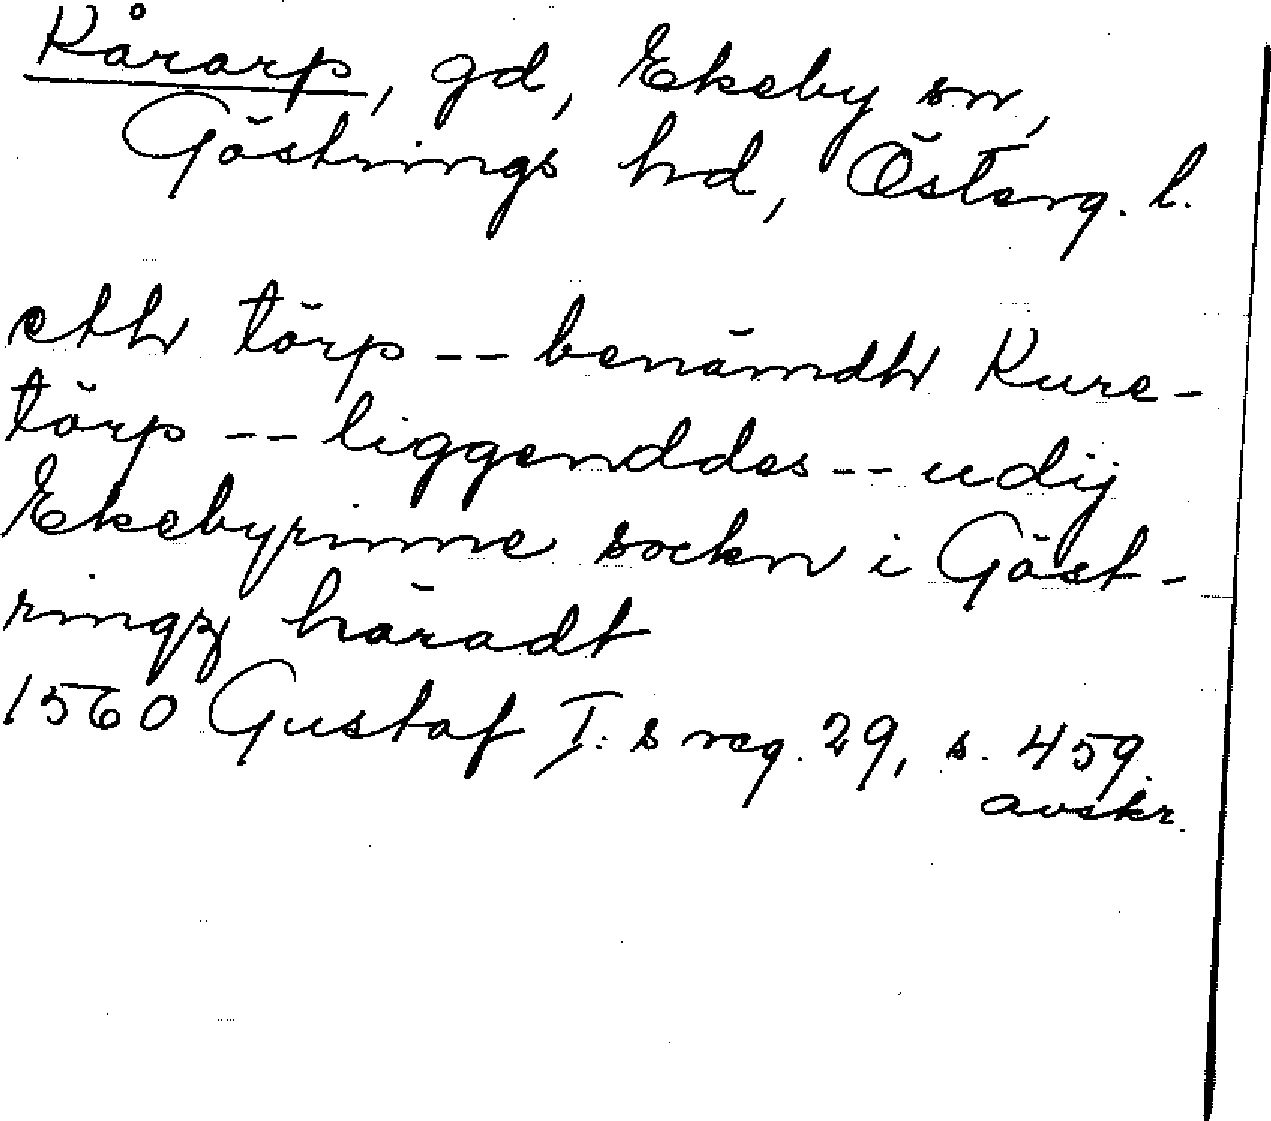 Kårarp, gd, Ekeby sn,
Göstrings hd, Österg. l.
etth törp -- benämdh Kure-
törp -- liggenddes -- udij
Ekebyrinne sockn i Göst-
ringz häradt
1560 Gustaf I:s reg. 29, s. 459.
avskr.